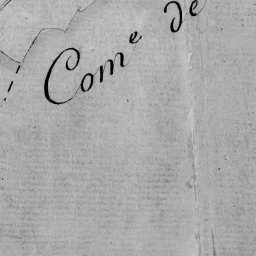 Com^e de